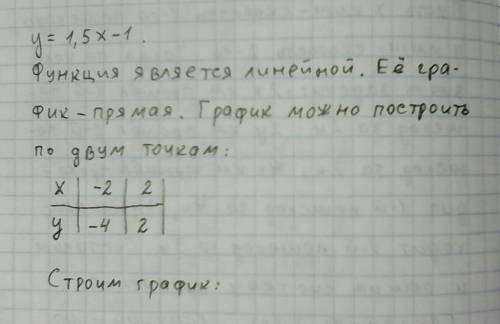 y = 1,5x - 1.
Функция является линейной. Её гра-
фик - прямая. График можно построить
по двум точкам:
x | -2 | 2
y | -4 | 2
Строим график: